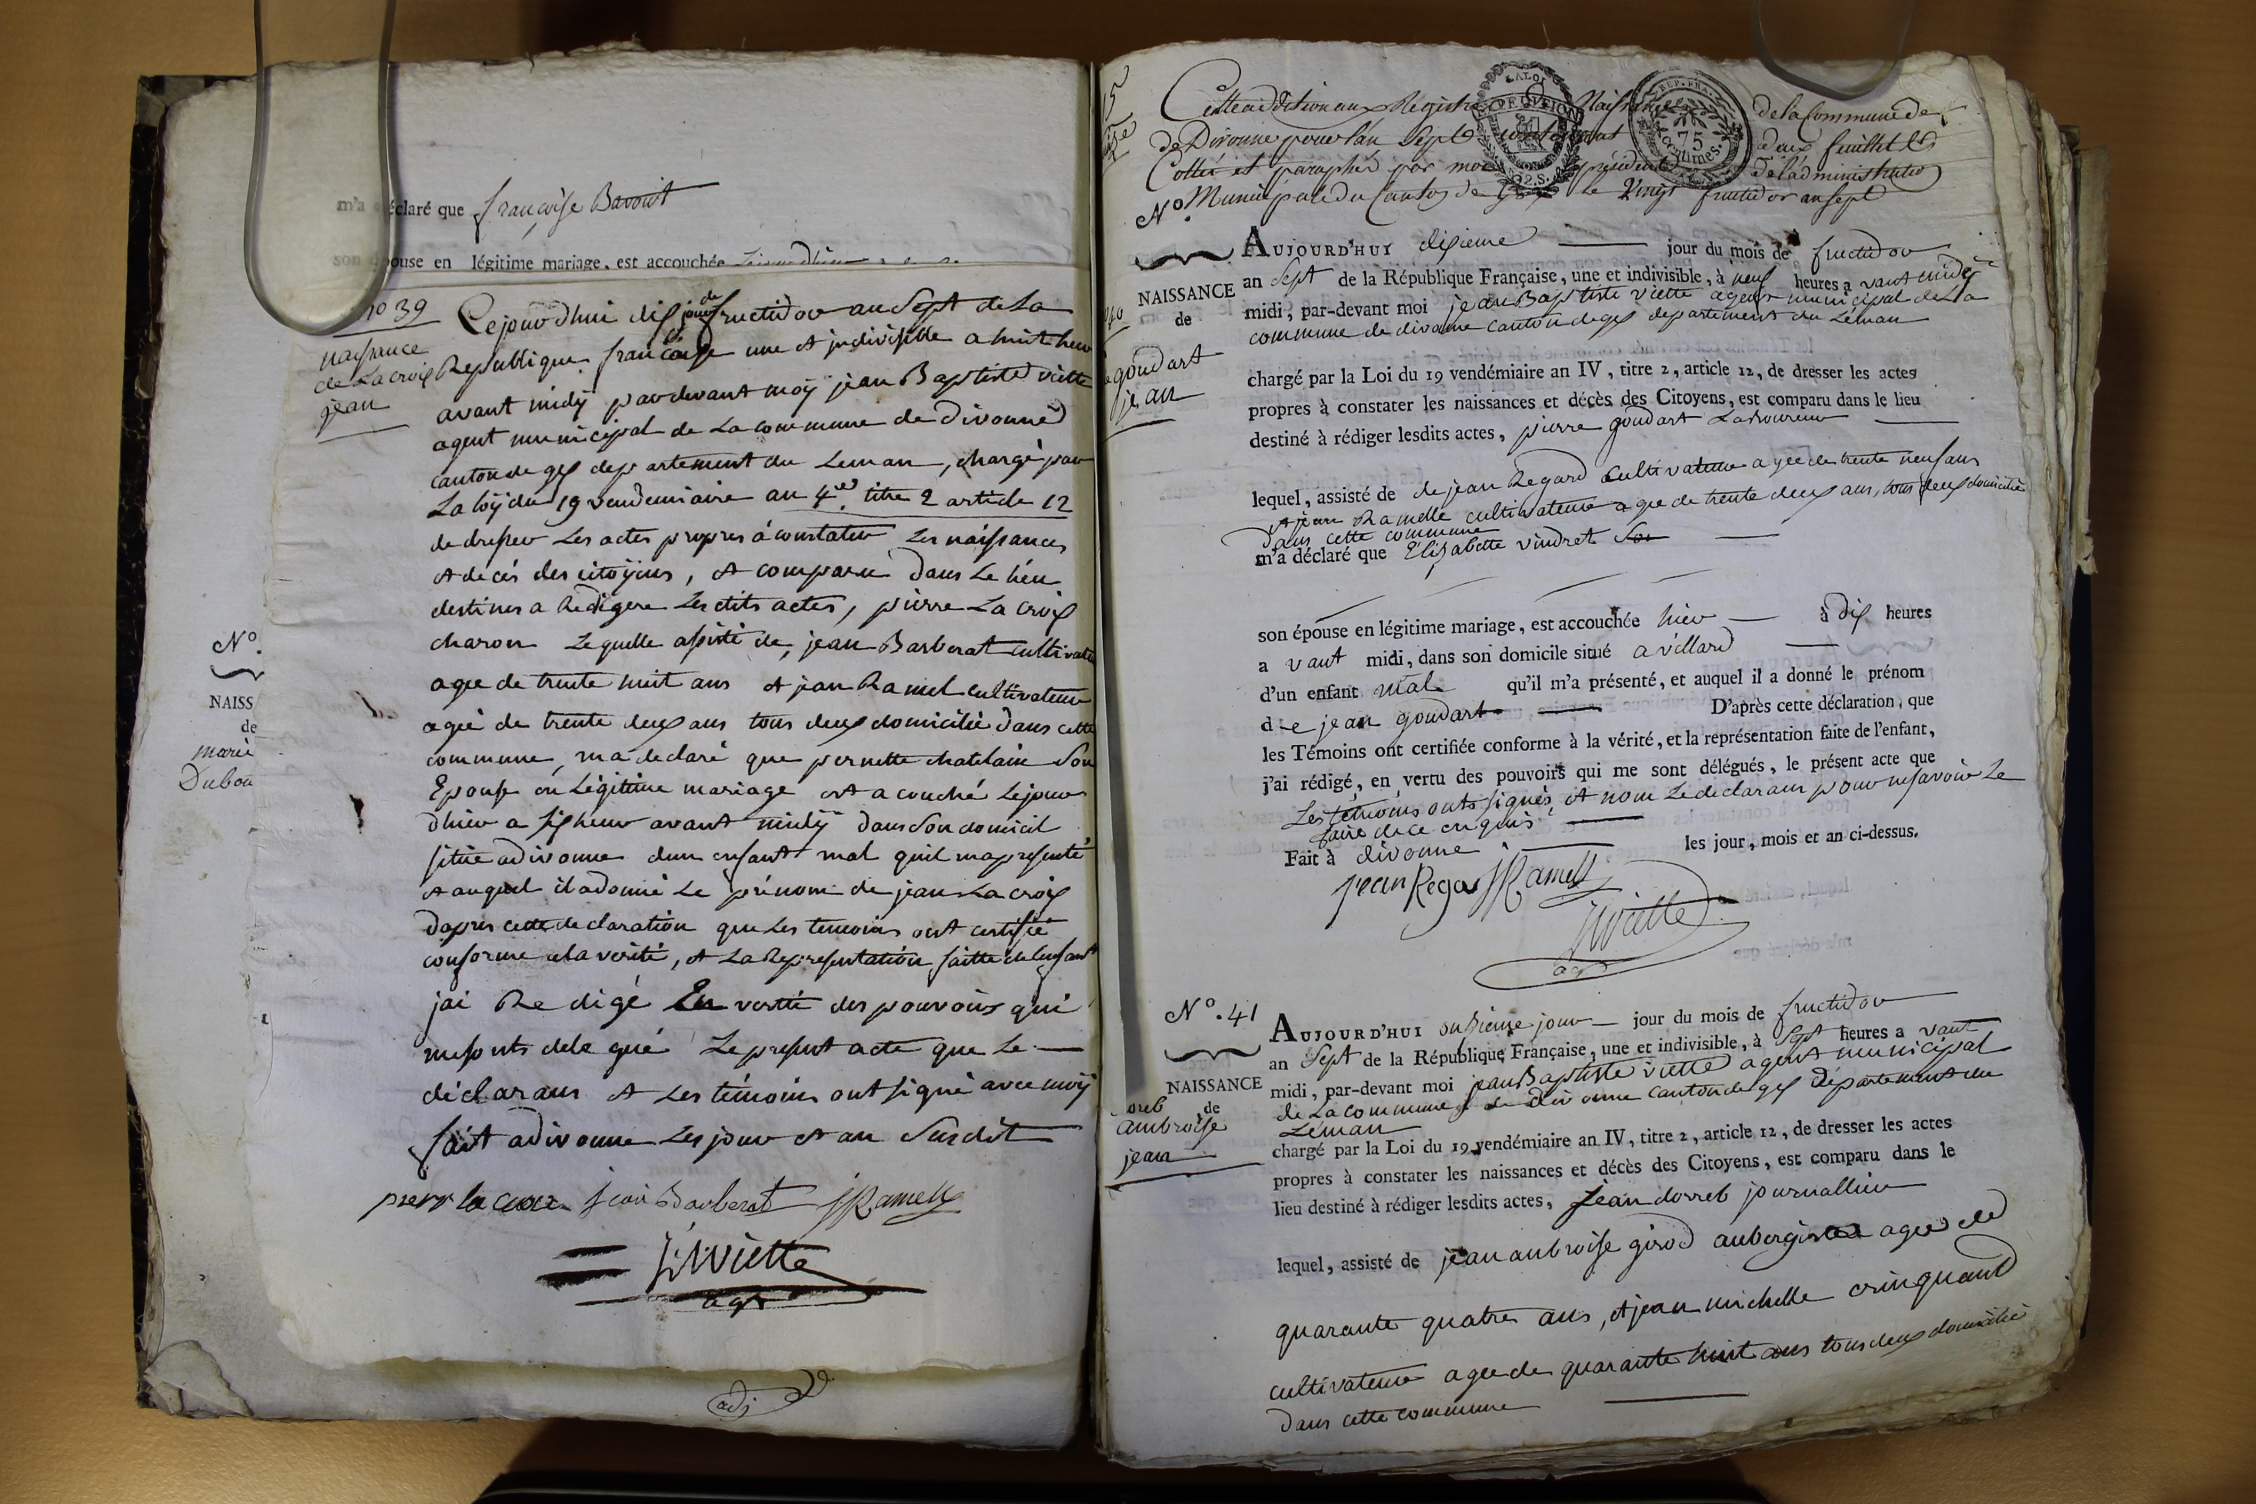 m'a déclaré que françoise Bavout
son épouse en légitime mariage, est accouchée
No.
NAISS
de
marie
Dubou
no 39
naissance
de La croix
jean
Cejourdhui dix jour de fructidor an Sept de La
Republique françoise une et jndivisible a huit heur
avant midy pardevant moy jean Baptiste viette
agent municipal de La commune de divonne
canton de gex departement du Leman, chargé par
La loy du 19 vendemiaire an 4e titre 2 article 12
de dresser Les actes propres a constater Les naissances
et decés des citoyens, et comparu Dans Le lieu
destines a Redigere Lesdits actes, pierre La croix
charon Lequelle assisté de, jean Barberat cultivateur
agee de trente huit ans et jean Ramel cultivateur
ageé de trente deux ans tous deux domicilié dans cette
commune, ma declaré que pernette chatelain Son
Epouse en Légitime mariage est acouché Lejour
dhier a six heur avant midy dans Son domicil
situé adivonne dun enfant mal quil mapresenté
et auquel iladonné Le prénom de jean La croix
Dapres cette declaration que Les temoins ont certifié
conforme ala vérité, et La Representation faitte delenfant
jai Redigé En vertu des pouvoirs qui
mesonts delegué Le present acte que Le
déclarans et Les témoins ont signé avec moy
fait adivonne Les jour et an Susdit
pierr la croix jean Barberat JRamell
JBViette
agt
adj
15
Cette addition aux Registre de Naissance de la Commune de
de Divonne pour l'an Sept contenant deux feuillets
Cotté et paraphé par moi président de l'administration
Municipale du Canton de Gex Le Vingt fructidor an sept
LA LOI
REP. FRA.
75
centimes.
No.
NAISSANCE
de
goudart
jean
AUJOURD'HUI dixieme jour du mois de fructidor
an Sept de la République Française, une et indivisible, à neuf heures avant midy
midi, par-devant moi jean Baptiste viette agent municipal de La
commune de divonne canton de gex departement du Léman
chargé par la Loi du 19 vendémiaire an IV, titre 2, article 12, de dresser les actes
propres à constater les naissances et décès des Citoyens, est comparu dans le lieu
destiné à rédiger lesdits actes, pierre goudart Laboureur
lequel, assisté de de jean Regard Cultivateur agee de trente neuf ans
et jean Ramelle cultivateur agee de trente deux ans, tous deux domicilié
Dans cette commune
m'a déclaré que Elisabette vindret Son
son épouse en légitime mariage, est accouchée hier à dix heures
avant midi, dans son domicile situé a villard
d'un enfant mal qu'il m'a présenté, et auquel il a donné le prénom
de jean goudart D'après cette déclaration, que
les Témoins ont certifiée conforme à la vérité, et la représentation faite de l'enfant,
j'ai rédigé, en vertu des pouvoirs qui me sont délégués, le présent acte que
Les temoins onts signés, et nom Ledeclarans pour nesavoir Le
faire de ce enquis
Fait à divonne les jour, mois et an ci-dessus.
jean Regar JRamell
JBViette
agt
No. 41
NAISSANCE
de
ambroise
jean
AUJOURD'HUI onzieme jour jour du mois de fructidor
an Sept de la République Française, une et indivisible, à Sept heures avant
midi, par-devant moi jean Baptiste viette agent municipal
de La commune de divonne canton de gex département du
Léman
chargé par la Loi du 19 vendémiaire an IV, titre 2, article 12, de dresser les actes
propres à constater les naissances et décès des Citoyens, est comparu dans le
lieu destiné à rédiger lesdits actes, jean dorreb journallier
lequel, assisté de jean anbroise girod aubergiste agée de
quarante quatre ans, et jean michelle crinquand
cultivateur agee de quarante huit ans tous deux domicilié
Dans cette commune